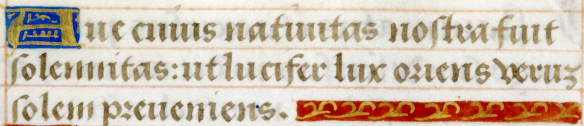 Aue cuius natiuitas nostra fuit
solennitas: ut lucifer lux oriens verum
solem preueniens.